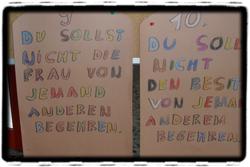 9
DU SOLLST
NICHT DIE
FRAU VON
JEMAND
ANDEREN
BEGEHREN.
10.
DU SOLL
NICHT
DEN BESIT
VON JEMA
ANDEREM
BEGEHREN